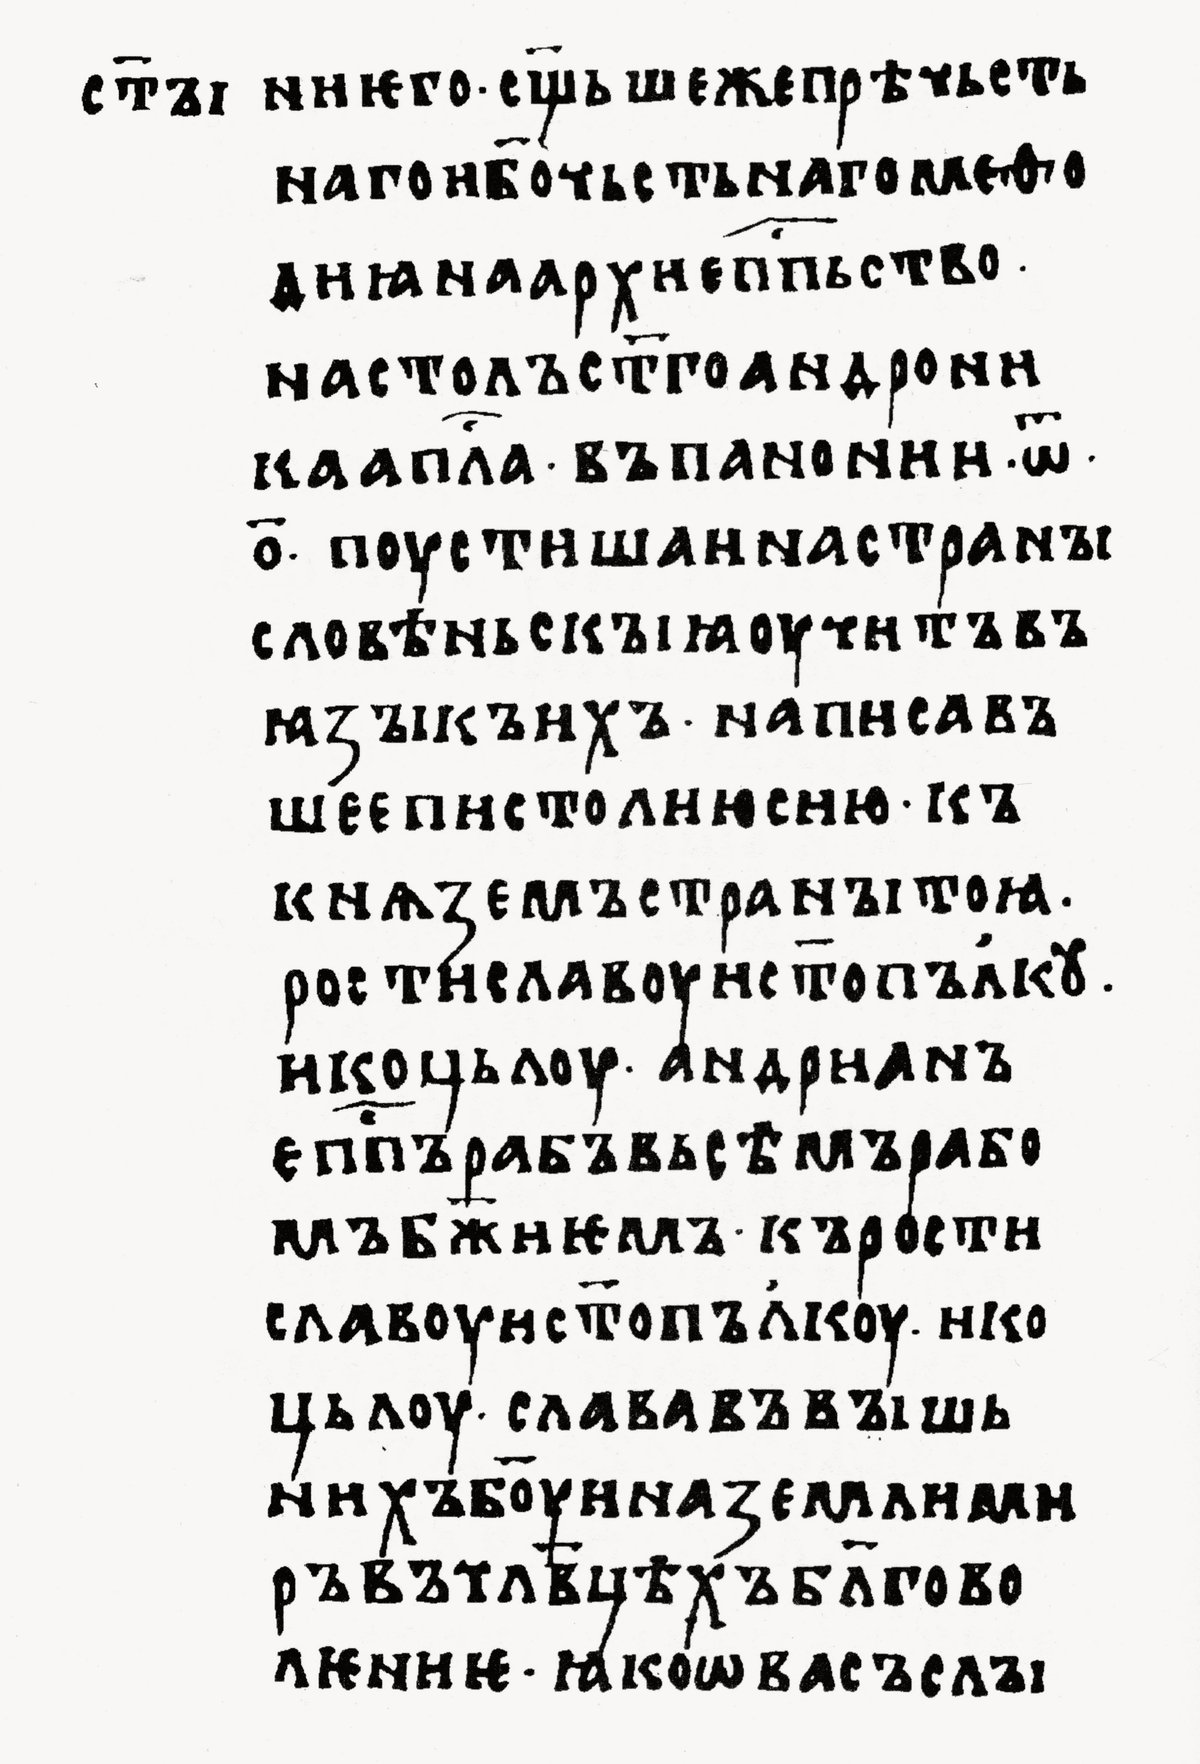 ст҃ъі нигго· сщ҃ьшежепрѣчьсть
нагоиб҃очьстьнагомеѳо
диꙗнаархиеп҃пьство·
настолъст҃гоандрони
каапл҃а· въпанонии·ѿ·
о҃· поустишаинастранъі
словѣньскъіꙗоучитъвъ
ꙗзъікъихъ· написавъ
шеепистолиюсию· къ
кнѧземъстранъітоꙗ·
ростиславоуист҃опъл҄кꙋ·
икоцьлоу· андрианъ
еп҃пърабъвьсѣмърабо
мъбж҃иѥмъ· кърости
славоуист҃опъл҄коу· ико
цьлоу· слававъвъішь
нихъбо҃уиназемлими
ръвъчлв҃цѣхъбл҃гово
лѥниѥ· ꙗкоѡвасъслъі